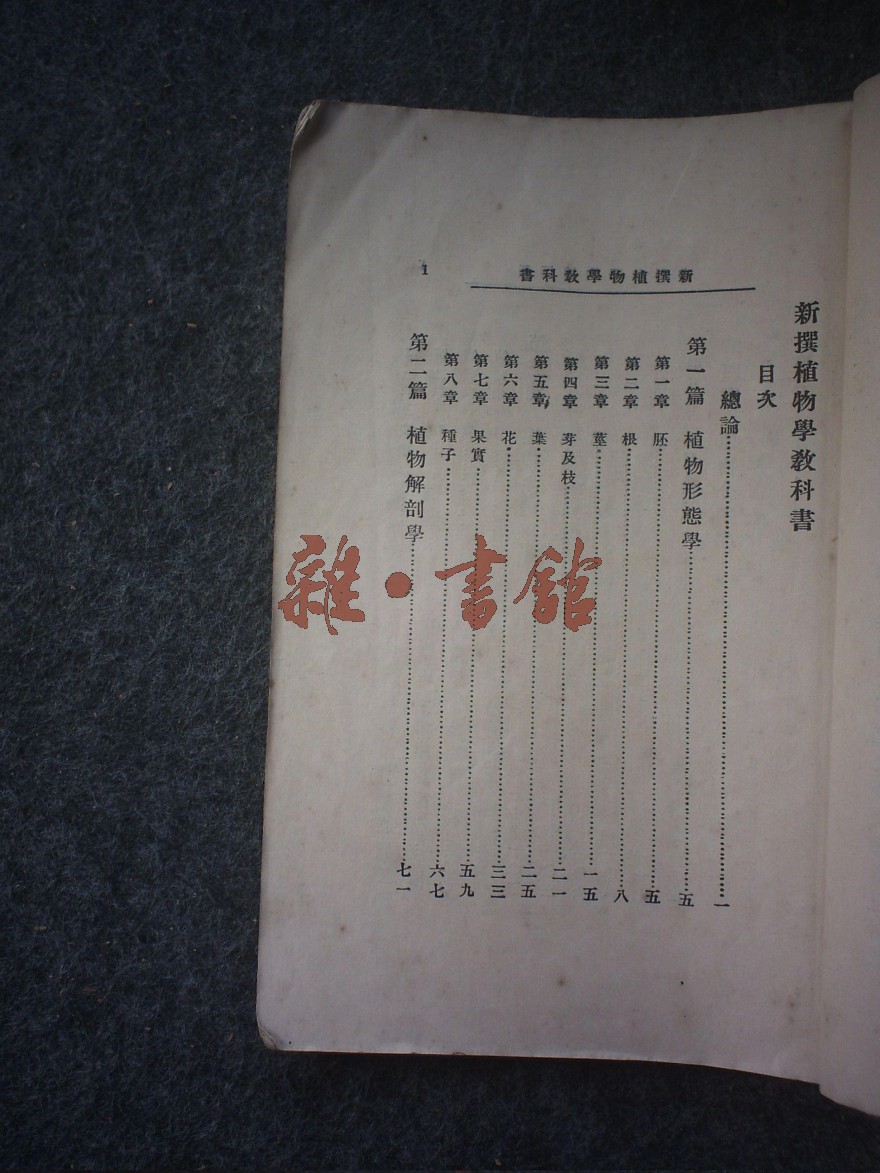 新撰植物學教科書
1
新撰植物學教科書
目次
總論……一
第一篇 植物形態學……五
第一章 胚……五
第二章 根……八
第三章 莖……一五
第四章 芽及枝……二一
第五章 葉……二五
第六章 花……三三
第七章 果實……五九
第八章 種子……六七
第二篇 植物解剖學……七一
雜·書館